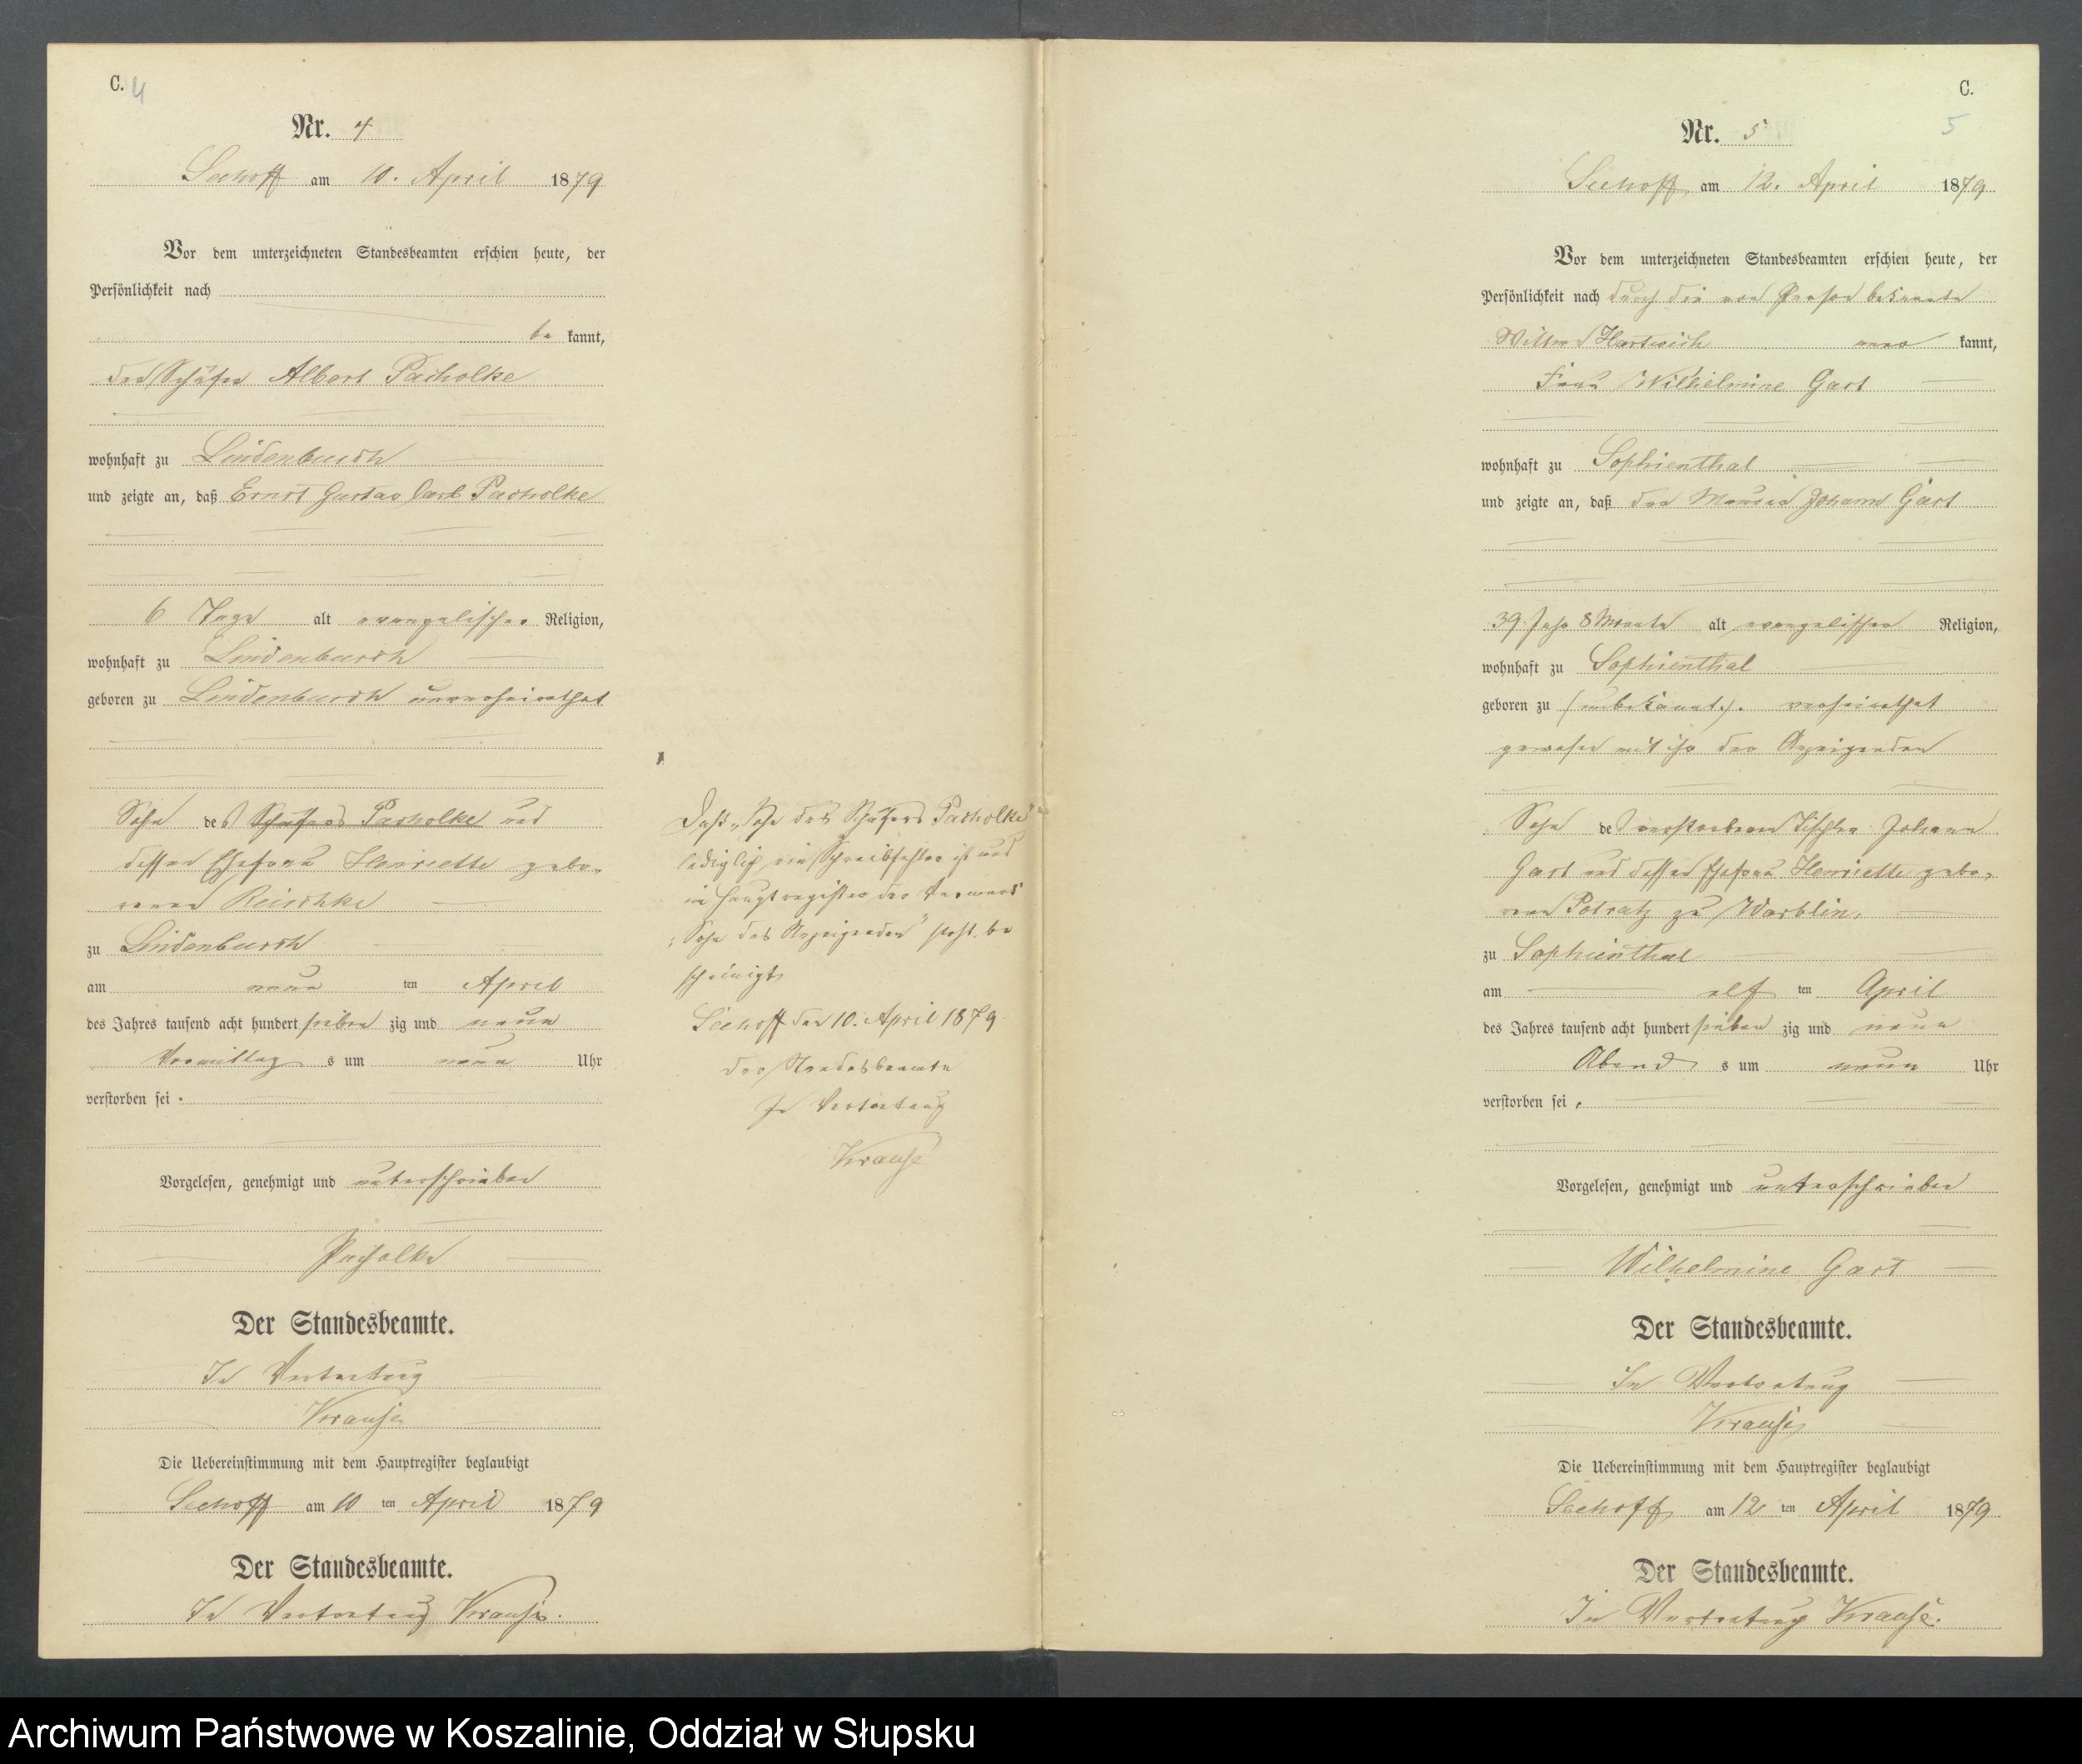 C. 4
Nr. 4
Seehoff am 10. April 1879
Vor dem unterzeichneten Standesbeamten erschien heute, der
Persönlichkeit nach
be kannt,
der Schäfer Albert Pacholke
wohnhaft zu Lindenbusch
und zeigte an, daß Ernst Gustav Carl Pacholke
6 Tage alt evangelischer Religion,
wohnhaft zu Lindenbusch
geboren zu Lindenbusch unverheirathet
Sohn des Schäfers Pacholke und
dessen Ehefrau Henriette gebo-
renen
zu Lindenbusch
am neun ten April
des Jahres tausend acht hundert sieben zig und neun
Vormittag s um neun Uhr
verstorben sei.
Vorgelesen, genehmigt und unterschrieben
Pacholke
Der Standesbeamte.
In Vertretung
Krause
Die Uebereinstimmung mit dem Hauptregister beglaubigt
Seehoff am 10 ten April 1879
Der Standesbeamte.
In Vertretung Krause.
Daß „Sohn des Schäfers Pacholke"
lediglich ein Schreibfehler ist und
im Hauptregister der Vermerk
„Sohn des Anzeigenden" steht, be
scheinigt
Seehoff den 10. April 1879.
Der Standesbeamte
In Vertretung
Krause
C.
5
Nr. 5
Seehoff am 12. April 1879
Vor dem unterzeichneten Standesbeamten erschien heute, der
Persönlichkeit nach durch die von Person bekannte
Hartwich aner kannt,
Frau Wilhelmine Gart
wohnhaft zu Sophienthal
und zeigte an, daß der Maurer Johann Gart
39 Jahr 8 Monate alt evangelischer Religion,
wohnhaft zu Sophienthal
geboren zu (unbekannt). verheirathet
gewesen mit ihr der Anzeigenden
Sohn des verstorbenen Tischler Johann
Gart und dessen Ehefrau Henriette gebo-
renen Potratz zu Warblin,
zu Sophienthal
am elf ten April
des Jahres tausend acht hundert sieben zig und neun
Abend s um neun Uhr
verstorben sei.
Vorgelesen, genehmigt und unterschrieben
Wilhelmine Gart
Der Standesbeamte.
In Vertretung
Krause
Die Uebereinstimmung mit dem Hauptregister beglaubigt
Seehoff am 12 ten April 1879
Der Standesbeamte.
In Vertretung Krause.
Archiwum Państwowe w Koszalinie, Oddział w Słupsku